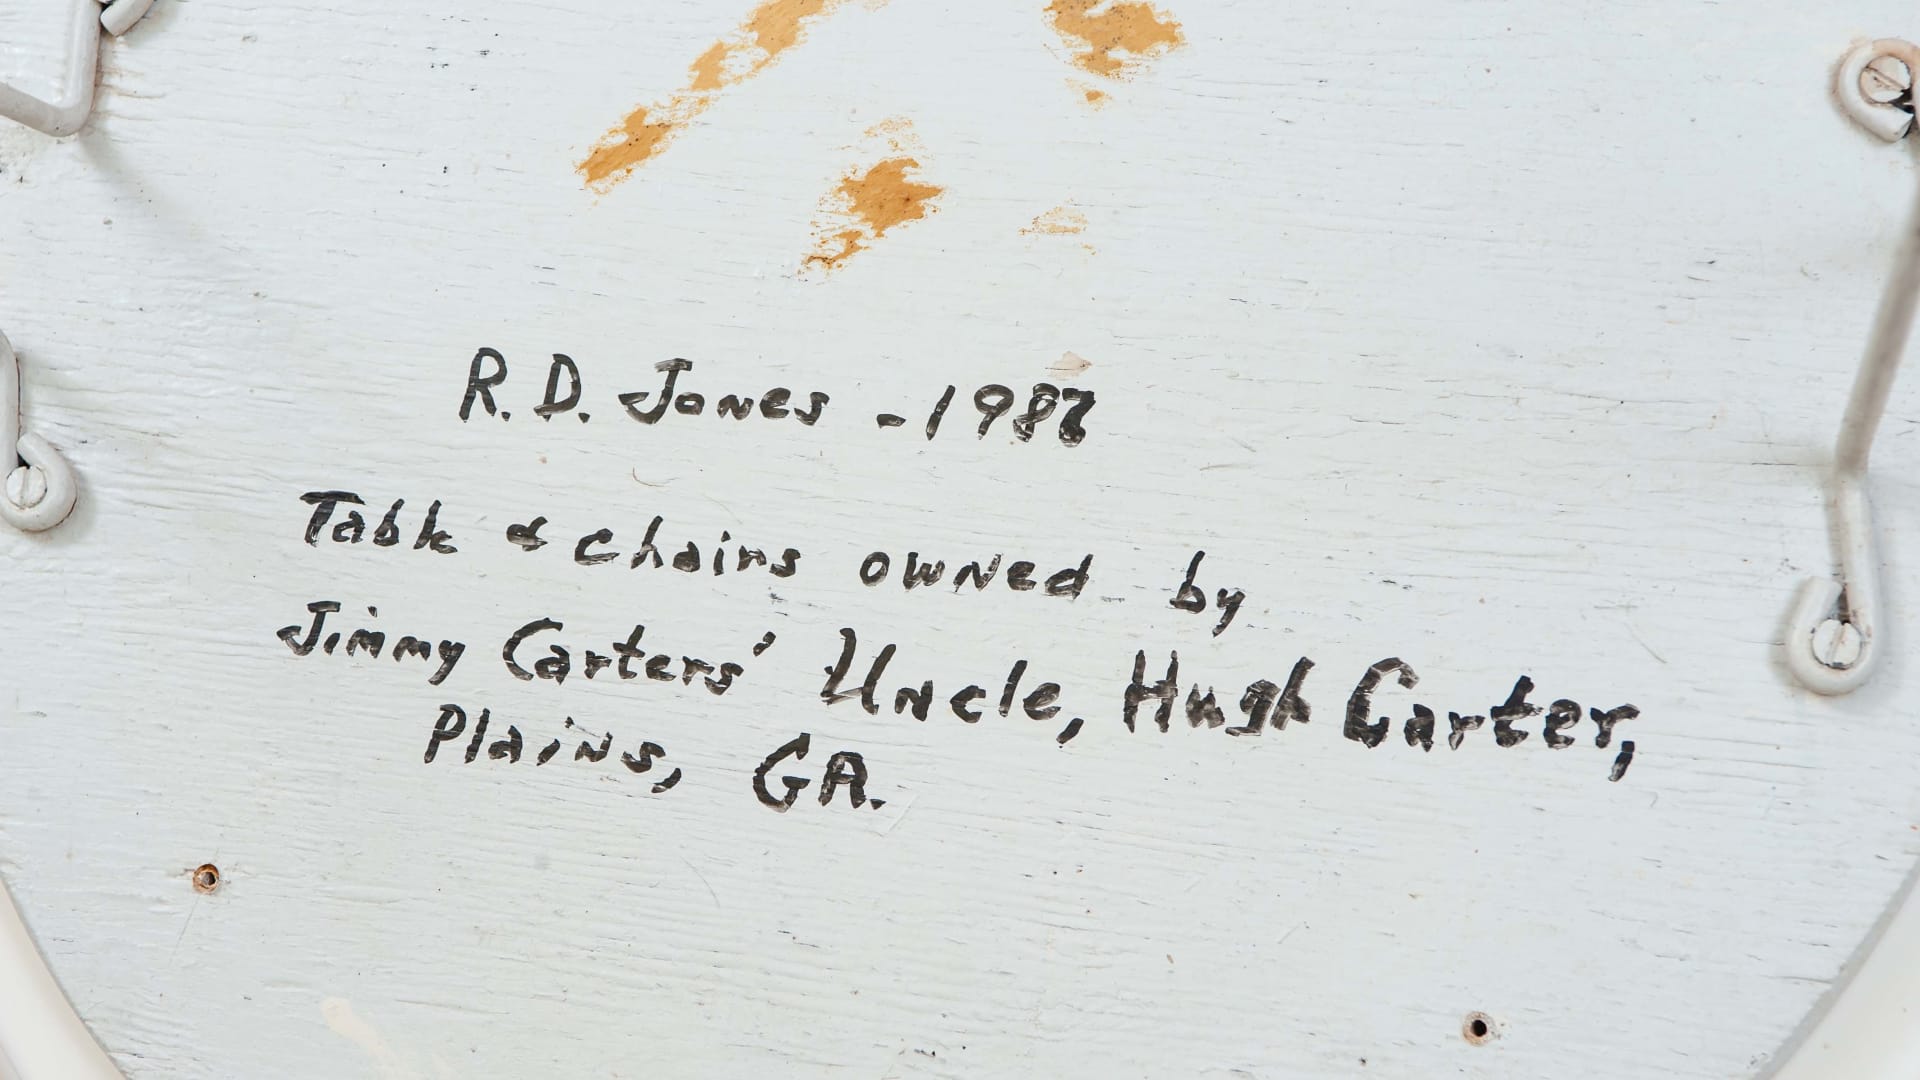 R.D. Jones - 1987
Table & chairs owned by
Jimmy Carters' Uncle, Hugh Carter,
Plains, GA.